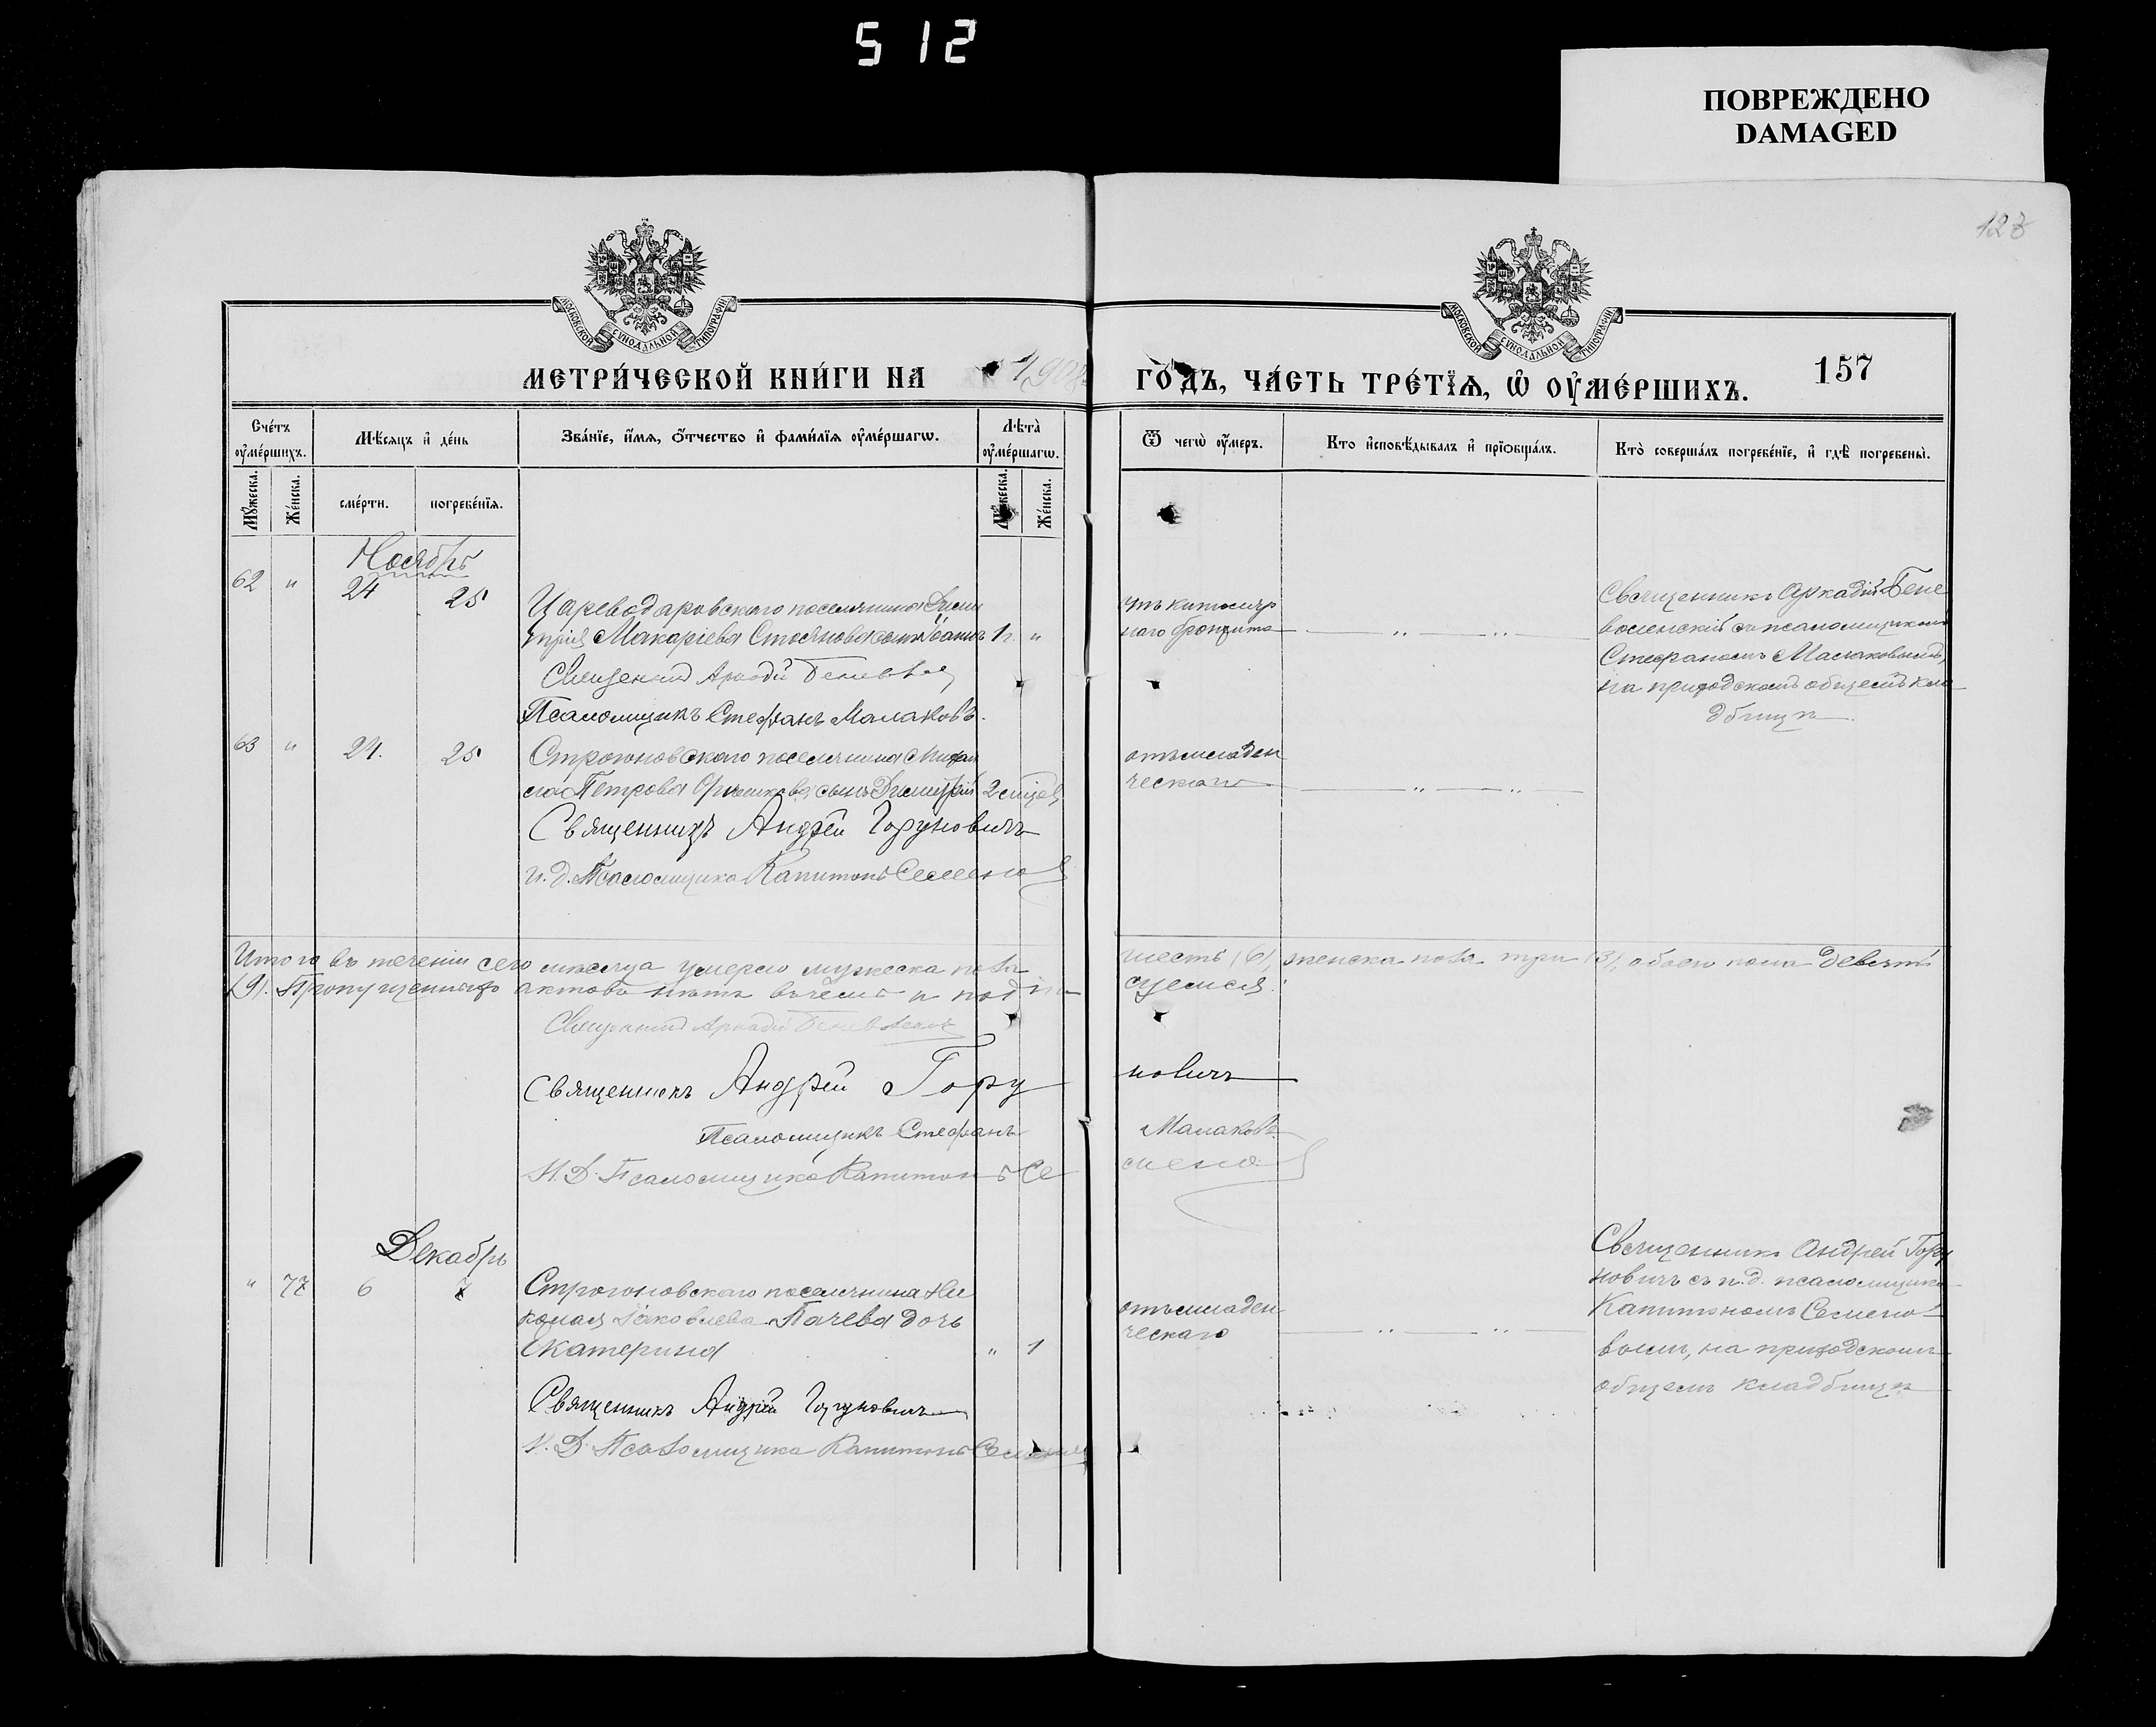 512
ПОВРЕЖДЕНО
DAMAGED
123
МОСКОВСКОЙ СѴНОДАЛЬНОЙ ТИПОГРАФІИ
МОСКОВСКОЙ СѴНОДАЛЬНОЙ ТИПОГРАФІИ
МЕТРИ́ЧЕСКОЙ КНИ́ГИ НА 1908 ГО́ДЪ, ЧА́СТЬ ТРЕ́ТЇѦ, Ѡ҆ ОУ҆МЕ́РШИХЪ.
157
Сче́тъ оу҆ме́ршихъ.
Мꙋ́жеска.
Же́нска.
Мѣ́сѧцъ и҆ де́нь
сме́рти.
погребе́нїѧ.
Зва́нїе, и҆́мѧ, ѻ҆́тчество и҆ фами́лїѧ оу҆ме́ршагѡ.
Лѣ́та оу҆ме́ршагѡ.
Мꙋ́жеска.
Же́нска.
Ѿ чегѡ̀ оу҆́меръ.
Кто̀ и҆сповѣ́дывалъ и҆ прїѡбща́лъ.
Кто̀ соверша́лъ погребе́нїе, и҆ гдѣ̀ погребены̀.
Ноябрь
62 " 24 25
Цареводаровскаго поселянина Дими
трія Макаріева Стоянова сынъ Іоаннъ 1 г. "
Священникъ Аркадій
Псаломщикъ Стефанъ Малаковъ.
бронхита
Священникъ Аркадій Бене
воленскій съ псаломщикомъ
Стефаномъ Малаковымъ,
на приходскомъ общемъ кла
дбищѣ
63 " 24. 25
Строгоновскаго поселянина Михаи
ла Петрова сынъ Димитрій 2 мѣсяц.
Священникъ Андрей Горуновичъ
И. д. Псаломщика Капитонъ Семенов
отъ младен
ческаго
Итого въ теченіи сего мѣсяца умерло мужеска пола шесть (6), женска пола три (3), обоего пола девять
(9). Пропущенныхъ актовъ нѣтъ въ чемъ и подпи суемся.
Священникъ Аркадій Беневоленскій
Священникъ Андрей Гору новичъ
Псаломщикъ Стефанъ Малаковъ
И. Д. Псаломщика Капитонъ Се менов
Декабрь
" 77 6 7
Строгоновскаго поселянина Ни
колая Іаковлева Пачева дочь
Екатерина " 1
Священникъ Андрей Горуновичъ
И. Д. Псаломщика Капитонъ Семенов
отъ младен
ческаго
Священникъ Андрей Гору
новичъ съ и. д. псаломщика
Капитономъ Семено
вымъ, на приходскомъ
общемъ кладбищѣ